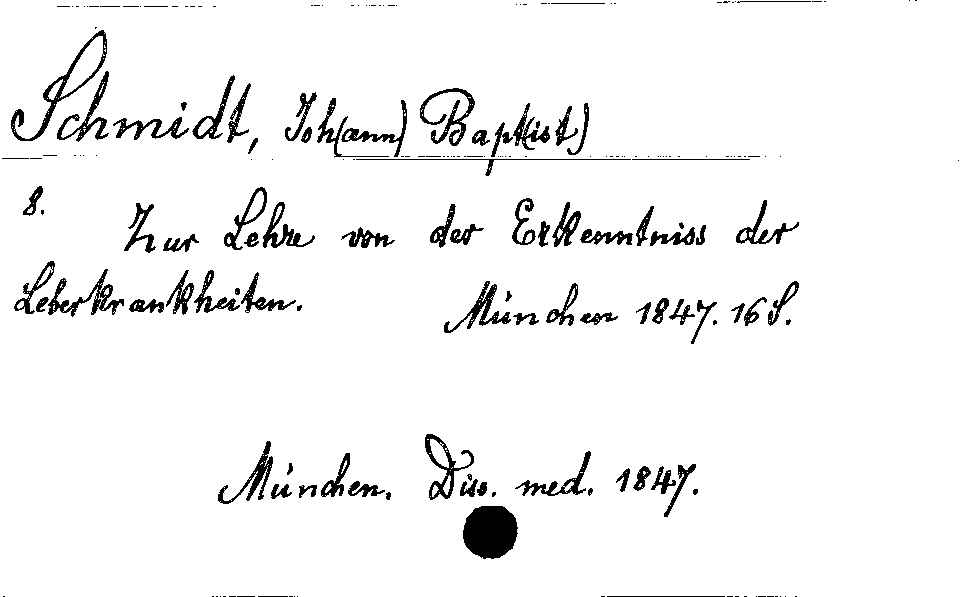 Schmidt, Joh(ann) Bapt(ist)
8.
Zur Lehre von der Erkenntniss der
Leberkrankheiten.
München 1847. 16 S.
München. Diss. med. 1847.